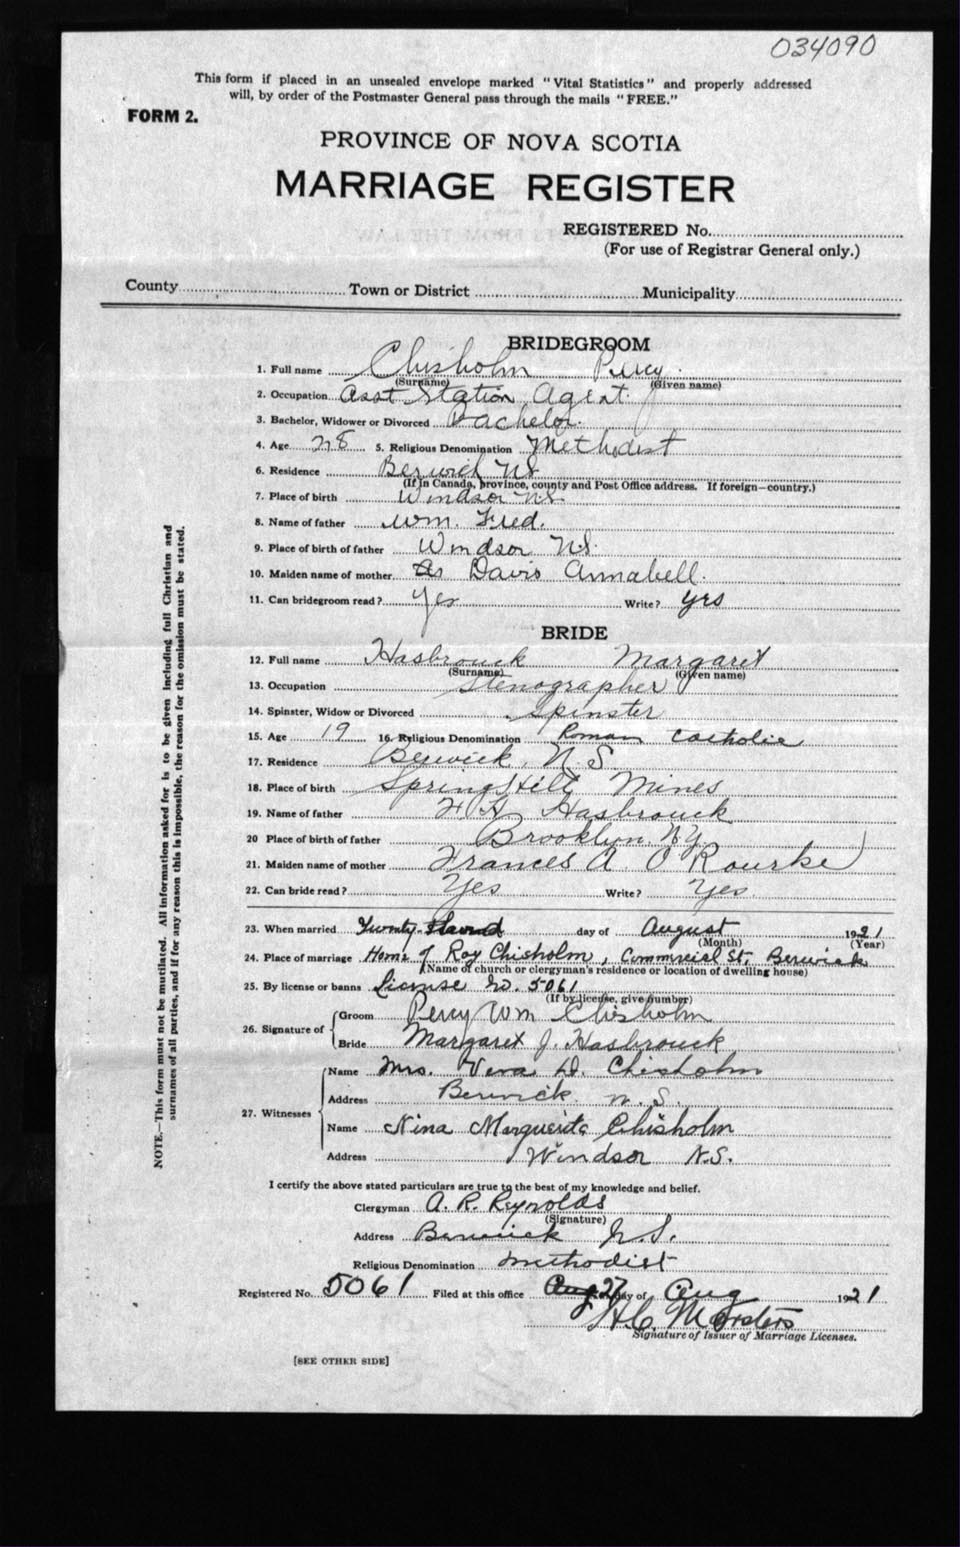 034090
This form if placed in an unsealed envelope marked "Vital Statistics" and properly addressed
will, by order of the Postmaster General pass through the mails "FREE."
FORM 2.
PROVINCE OF NOVA SCOTIA
MARRIAGE REGISTER
REGISTERED No.
(For use of Registrar General only.)
County Town or District Municipality
BRIDEGROOM
1. Full name Chisholm Percy
(Surname) (Given name)
2. Occupation Asst Station Agent.
3. Bachelor, Widower or Divorced Bachelor.
4. Age 28 5. Religious Denomination Methodist
6. Residence Berwick NS
(If in Canada, province, county and Post Office address. If foreign—country.)
7. Place of birth Windsor N.S.
8. Name of father Wm. Fred.
9. Place of birth of father Windsor NS.
10. Maiden name of mother Davis Annabell.
11. Can bridegroom read? Yes Write? yrs
BRIDE
12. Full name Hasbrouck Margaret
(Surname) (Given name)
13. Occupation Stenographer
14. Spinster, Widow or Divorced Spinster
15. Age 19 16. Religious Denomination Roman Catholic
17. Residence Berwick, N.S.
18. Place of birth Spring Hill Mines
19. Name of father Hasbrouck
20 Place of birth of father Brooklyn, N.Y.
21. Maiden name of mother Frances A. O Rourke
22. Can bride read? Yes Write? Yes.
23. When married Twenty day of August 1921
(Month) (Year)
24. Place of marriage Home of Roy Chisholm, Commercial St, Berwick
(Name of church or clergyman's residence or location of dwelling house)
25. By license or banns License No. 5061
(If by license, give number)
26. Signature of Groom Percy Wm Chisholm
Bride Margaret J. Hasbrouck
27. Witnesses Name Mrs. Vera D. Chisholm
Address Berwick N.S.
Name Nina Marguerita Chisholm
Address Windsor N.S.
I certify the above stated particulars are true to the best of my knowledge and belief.
Clergyman A. R. Reynolds
(Signature)
Address Berwick N.S.
Religious Denomination Methodist
Registered No. 5061 Filed at this office 27 day of Aug 1921
H.C. Morsters
Signature of Issuer of Marriage Licenses.
[SEE OTHER SIDE]
NOTE.—This form must not be mutilated. All information asked for is to be given including full Christian and
surnames of all parties, and if for any reason this is impossible, the reason for the omission must be stated.